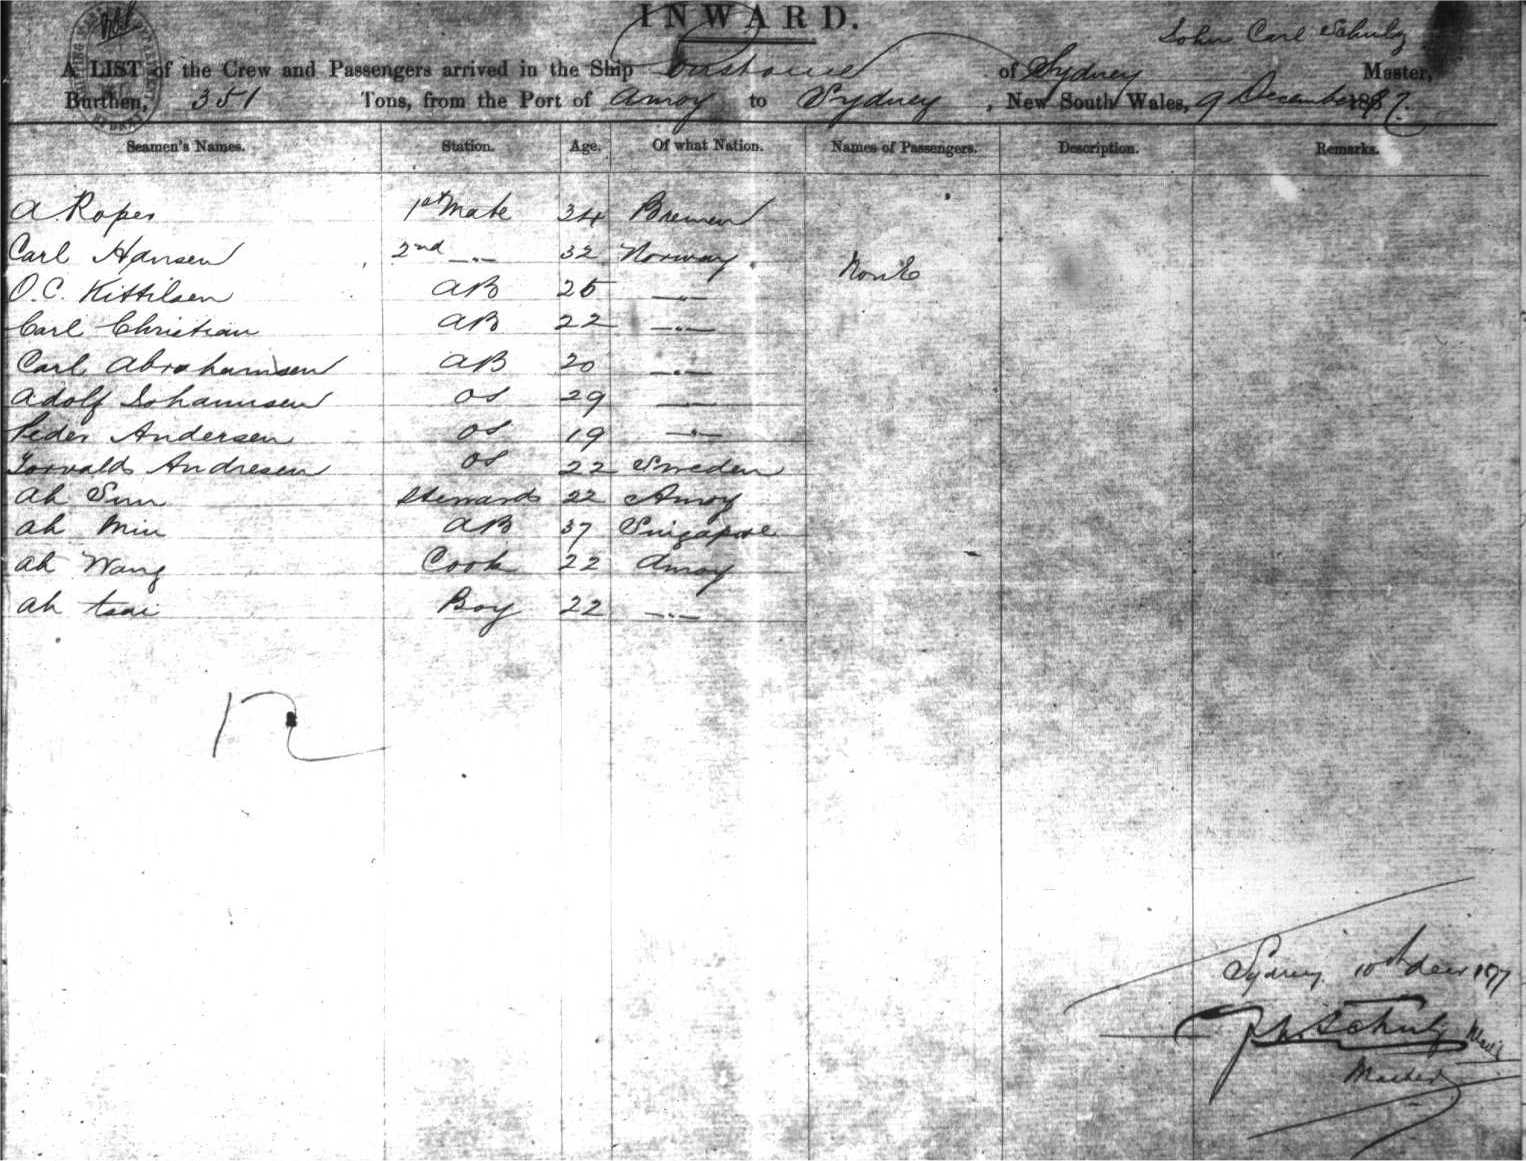 INWARD.
John Carl Schulz
A LIST of the Crew and Passengers arrived in the Ship of Sydney Master,
Burthen, 351 Tons, from the Port of Amoy to Sydney, New South Wales, 9 December 1887.
Seamen's Names. Station. Age. Of what Nation. Names of Passengers. Description. Remarks.
A Roper 1st Mate 34 Bremen
Carl Hansen 2nd -"- 32 Norway None
O.C. Kittilsen AB 25 -"-
Carl Christian AB 22 -"-
Carl Abrahamsen AB 20 -"-
Adolf Johannsen OS 29 -"-
Peder Andersen OS 19 -"-
Torvalds Andresen OS 22 Sweden
Ah Sun Stewards 22 Amoy
Ah Min AB 37 Singapore
Ah Wang Cook 22 Amoy
Ah tsai Boy 22 -"-
12
Sydney 10th decr
Schulz
Master